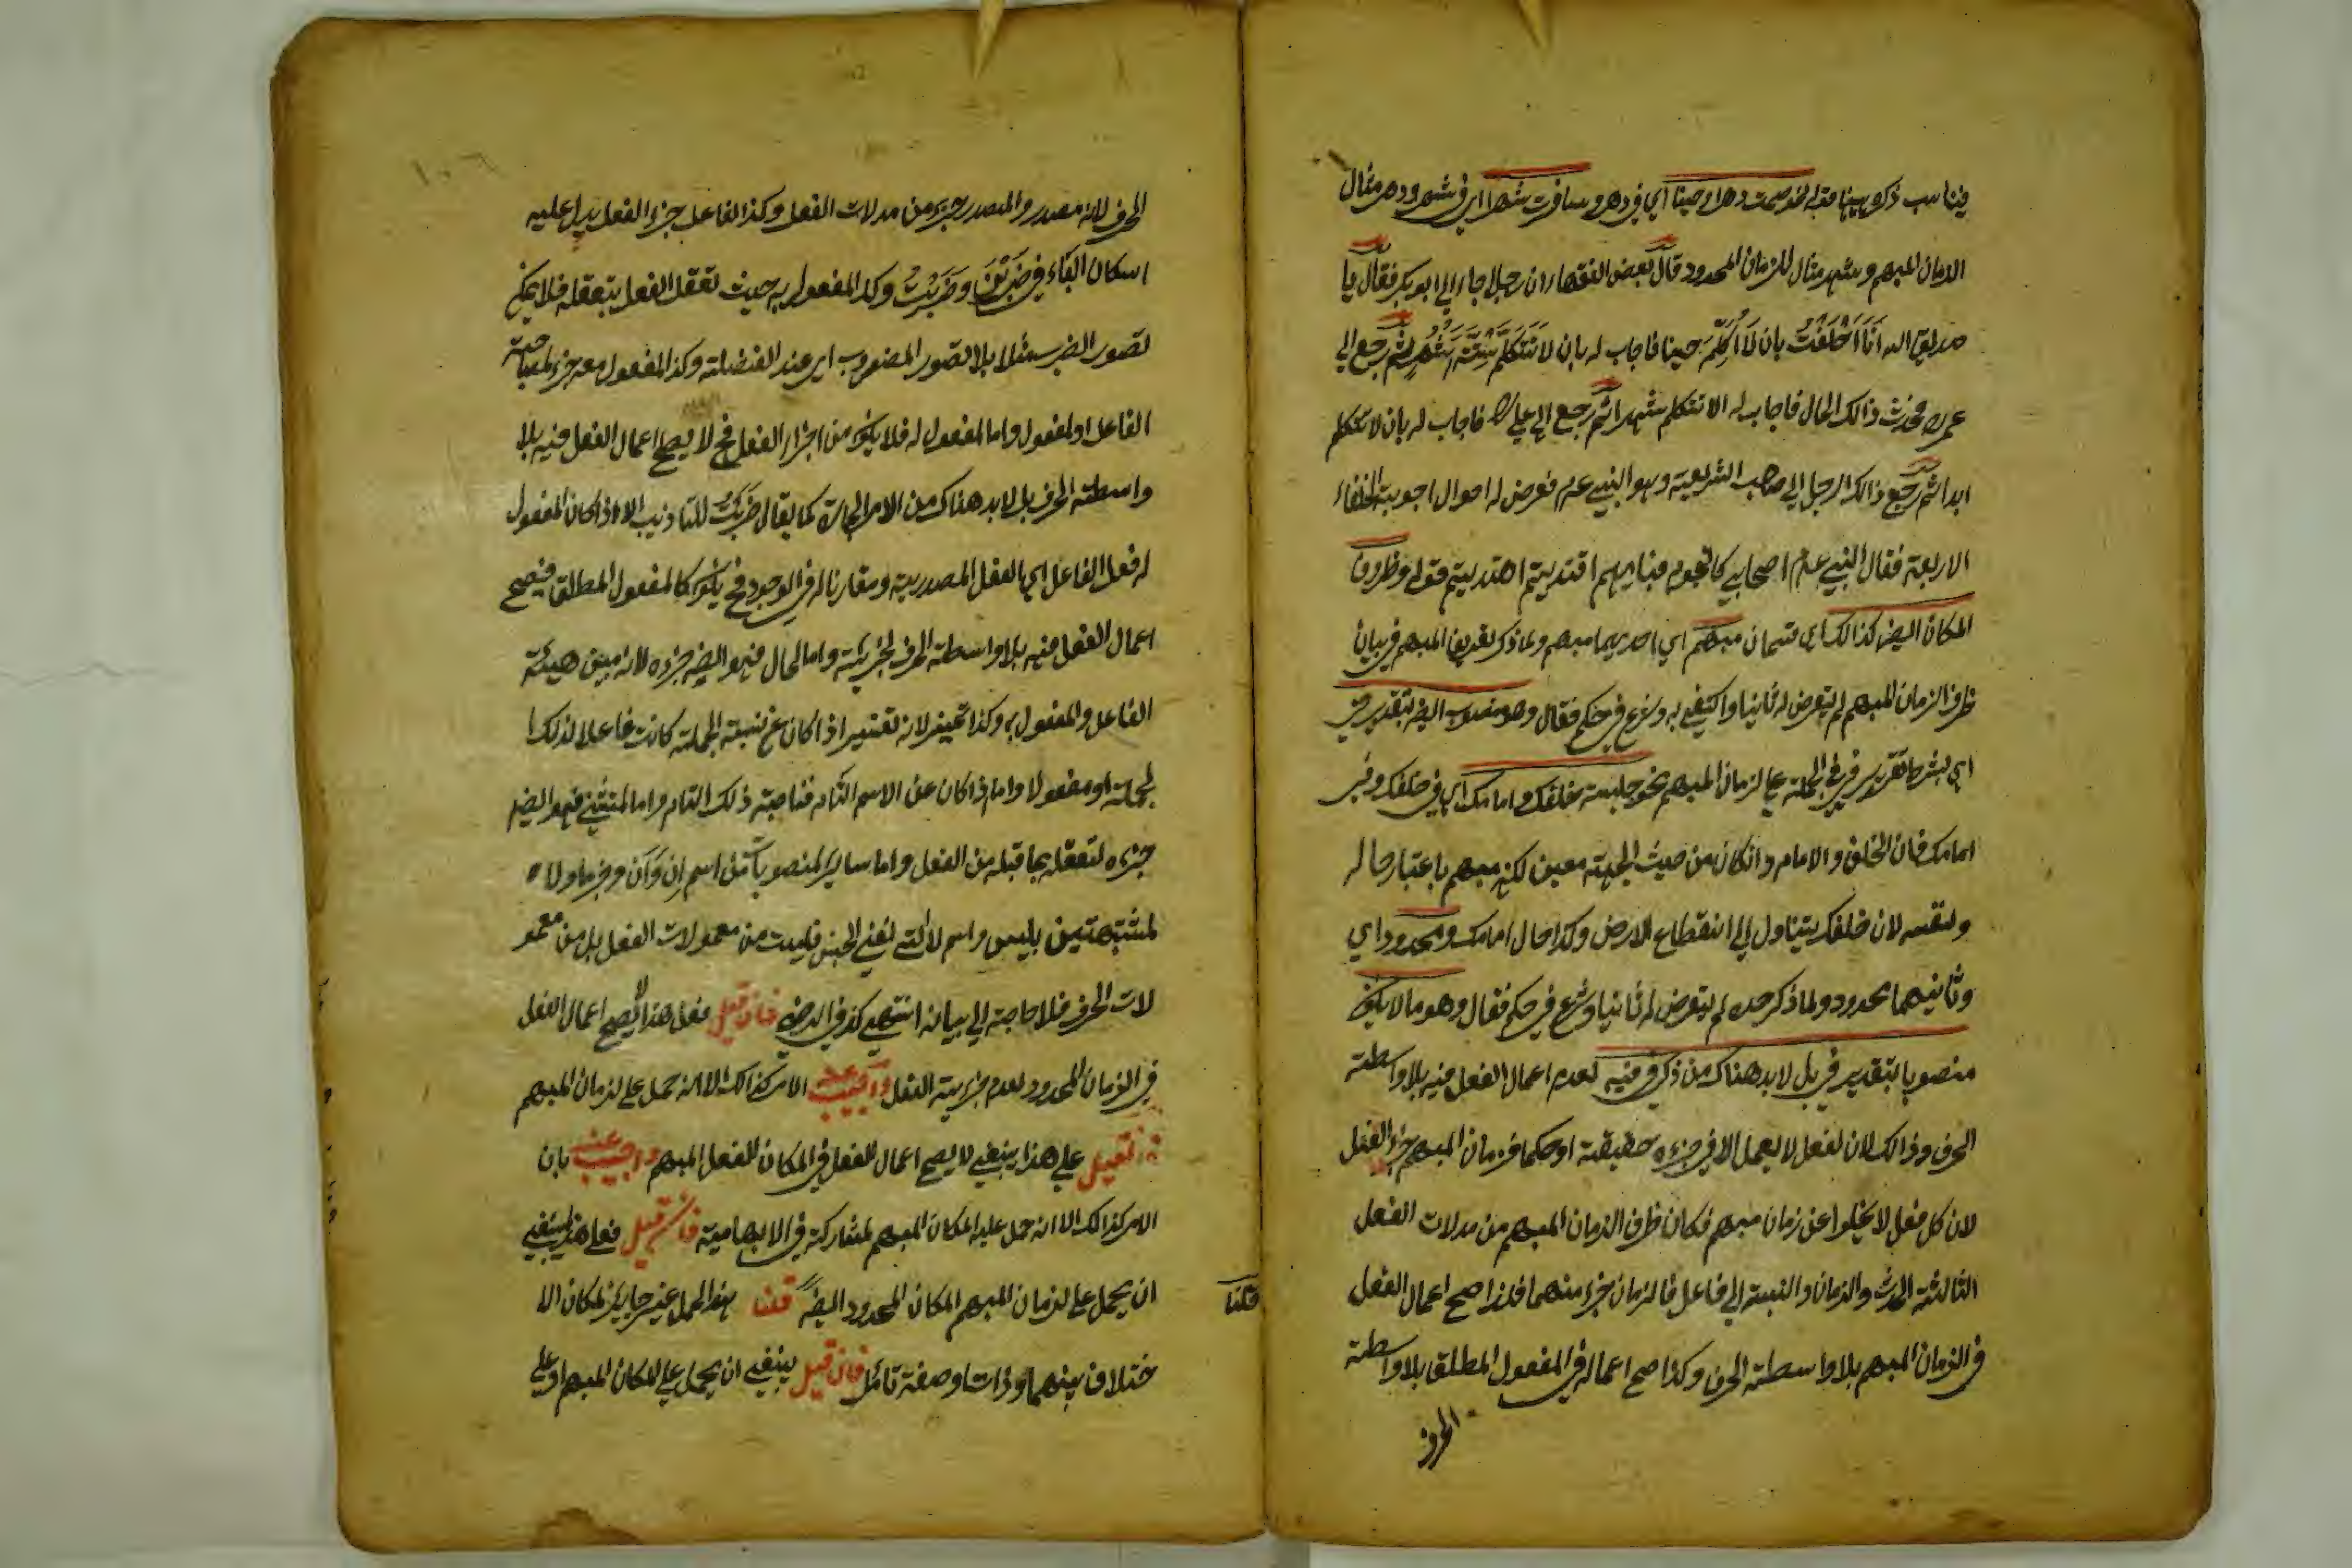 فيناسب ذكره ههنا فقوله نحو صمت دهرا وحينا اي في دهر وسافرت شهرا اي في شهر ودهر مثال
الزمان المبهم وشهر مثال للزمان المحدود قال بعض الفقهاء ان رجلا جاء الى ابو بكر فقال يا
صديق الله انا احلفت بان لا اكلم حينا فاجاب له بان لا تتكلم ستة اشهر ثم رجع الى
عمر ذالك الحال فاجاب له الا تتكلم شهرا ثم رجع الى علي فاجاب له بان لا تتكلم
ابدا ثم رجع ذالك الرجل الى صاحب الشريعة وهو النبي عم فعرض له احوال اجوبة الخلفاء
الاربعة فقال النبي عم اصحابي كالنجوم فبايهم اقتديتم اهتديتم قوله وظروف
المكان ايضا كذالك اي قسمان مبهم اي احديهما مبهم ولما ذكر تعريف المبهم في بيان
ظرف الزمان المبهم لم يتعرض له ثانيا واكتفى به وشرع في حكم فقال وهو منصوب ايضا بتقدير في
اي بشرط تقدير في في الجملة على الزمان المبهم نحو جلست خلفك وامامك اي في خلفك وفي
امامك فان الخلف والامام وان كان من حيث الجهة معين لكنه مبهم باعتبار حاله
ونفسه لان خلفك يتناول الى انقطاع الارض وكذا حال امامك ومحدود اي
وثانيهما محدود ولما ذكر حده لم يتعرض له ثانيا وشرع في حكم فقال وهو ما لا يكون
منصوبا بتقدير في بل لابد هناك من ذكر في فيه لعدم اعمال الفعل فيه بلا واسطة
الحرف وذالك لان الفعل لا يعمل الا في جزءه حقيقة او حكما فزمان المبهم جزء الفعل
لان كل فعل لا يخلوا عن زمان مبهم فكان ظرف الزمان المبهم من مدلات الفعل
الثالثة الحدث والزمان والنسبة الى فاعل فالزمان جزء منهما فلذا صح اعمال الفعل
في الزمان المبهم بلا واسطة الحرف وكذا صح اعماله في المفعول المطلق بلا واسطة
الحرف
الحرف لانه مصدر والمصدر جزء من مدلات الفعل وكذا الفاعل جزء الفعل يدل عليه
اسكان الباء في ضربن وضربت وكذا المفعول به حيث تعقل الفعل بتعقله فلا يمكن
تصور الضرب مثلا بلا تصور المضروب اي عند الفضلة وكذا المفعول معه جزء لمصاحبة
الفاعل او المفعول واما المفعول له فلا يكون من اجزاء الفعل فح لا يصح اعمال الفعل فيه بلا
واسطة الحرف بل لابد هناك من اللام الجارة كما يقال ضربت للتاديب الا اذا كان المفعول
له فعل الفاعل اي الفعل المصدرية ومقارنا له في الوجود فح يكون كالمفعول المطلق فيصح
اعمال الفعل فيه بلا واسطة الحرف لجزئية واما الحال فهو ايضا جزءه لانه مبين هيئة
الفاعل والمفعول به وكذا تميز لانه تفسير اذا كان عن نسبة الجملة كانت فاعلا لذلك
لجملة او مفعولا واما اذا كان عن الاسم التام فناصبه ذلك التام واما المستثنى فهو ايضا
جزءه لتعقله بما قبله من الفعل واما سائر المنصوبات من اسم ان وان وخبر ما ولا
لمشبهتين بليس واسم لا التي لنفي الجنس فليست من معمولات الفعل بل من معمو
لات الحرف فلا حاجة الى بيانه انتهى كذا في الرضي فان قيل فعل هذا لا يصح اعمال الفعل
في الزمان المحدود لعدم جزئية الفعل واجيب عنه الامر كذالك الا انه حمل على الزمان المبهم
فان قيل على هذا ينبغي لا يصح اعمال الفعل في المكان للفعل المبهم واجيب عنه بان
الامر كذالك الا انه حمل عليه المكان المبهم لمشاركته في الابهامية فان قيل فعلى هذا ينبغي
ان يحمل على الزمان المبهم المكان المحدود ايضا قلنا هذا الحمل غير جايز لمكان الا
قلنا
ختلاف بينهما ذات وصفة تامل فان قيل ينبغي ان يحمل على المكان المبهم او على